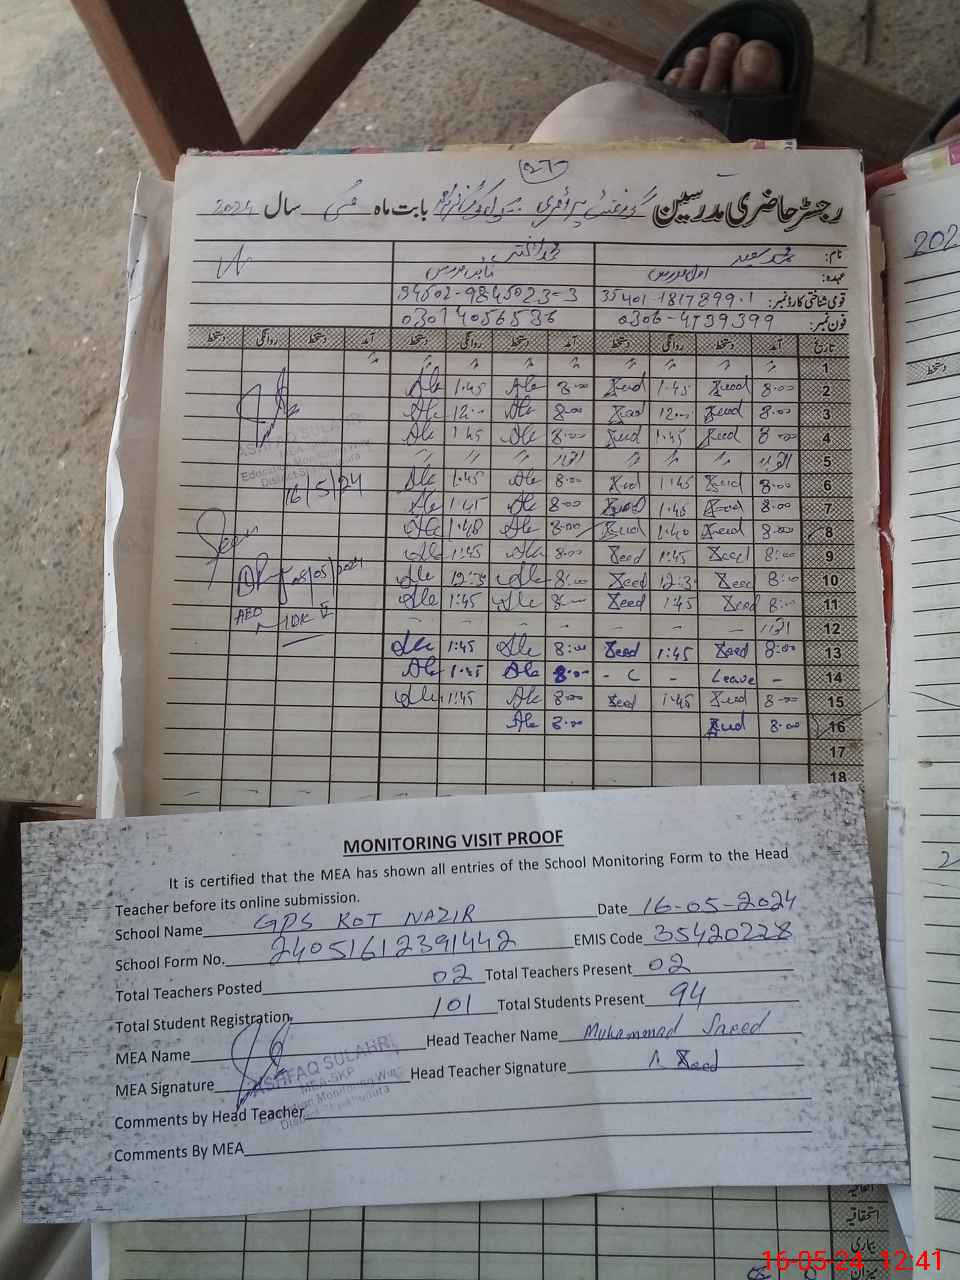 (27)
رجسٹر حاضری مدرسین گورنمنٹ پرائمری سکول کوٹ نذیر بابت ماہ مئی سال 2024
نام: محمد سعید محمد
عہدہ: اول مدرس نائب مدرس
قومی شناختی کارڈ نمبر: 35401-1817899-1 34502-9845023-3
فون نمبر: 0306-4739399 03014056536
تاریخ آمد دستخط روانگی دستخط آمد دستخط روانگی دستخط آمد دستخط روانگی دستخط
1 〃 〃 〃 〃 〃 〃 〃 〃
2 8:00 Saeed 1:45 Saeed 8:00 1:45
3 8:00 Saeed 12:00 Saeed 8:00 12:00
4 8:00 Saeed 1:45 Saeed 8:00 1:45
5 اتوار 〃 〃 〃 اتوار 〃 〃 〃
6 8:00 Saeed 1:45 Saeed 8:00 1:45
7 8:00 Saeed 1:45 Saeed 8:00 1:45
8 8:00 Saeed 1:40 Saeed 8:00 1:40
9 8:00 Saeed 1:45 Saeed 8:00 1:45
10 8:00 Saeed 12:30 Saeed 8:00 12:30
11 8:00 Saeed 1:45 Saeed 8:00 1:45
12 اتوار
13 8:00 Saeed 1:45 Saeed 8:00 1:45
14 - Leave - C - 8:00 1:45
15 8:00 Saeed 1:45 Saeed 8:00 1:45
16 8:00 Saeed 8:00
17
18
ASHFAQ SULAHRI
MEA-SKP
Education Monitoring Wing
16/5/24
Seen
08/05/2024
AEO
MONITORING VISIT PROOF
It is certified that the MEA has shown all entries of the School Monitoring Form to the Head
Teacher before its online submission.
School Name GPS KOT NAZIR Date 16-05-2024
School Form No. 24051612391442 EMIS Code 35420228
Total Teachers Posted 02 Total Teachers Present 02
Total Student Registration 101 Total Students Present 94
MEA Name Head Teacher Name Muhammad Saeed
MEA Signature Head Teacher Signature Saeed
ASHFAQ SULAHRI
MEA-SKP
Education Monitoring Wing
Comments by Head Teacher
Comments By MEA
202
دستخط
2
اتفاقیہ
استحقاقیہ
بیماری
میزان
16-05-24 12:41